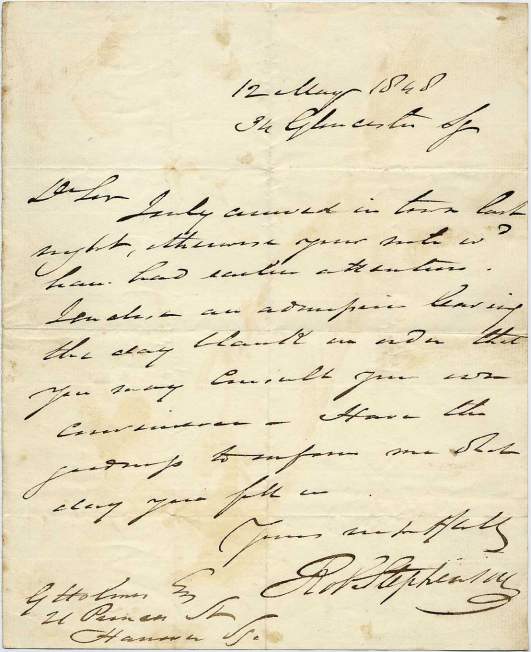 12 May 1848
34 Gloucester Sq
Dr Sir
I only arrived in town last
night, otherwise your note wd
have had earlier attention.
I enclose an admission leaving
the day blank in order that
you may consult your own
convenience - Have the
goodness to inform me what
day you fill in
Yours
Rob Stephenson
G Holmes Esq
Princes St
Hanover Sq.